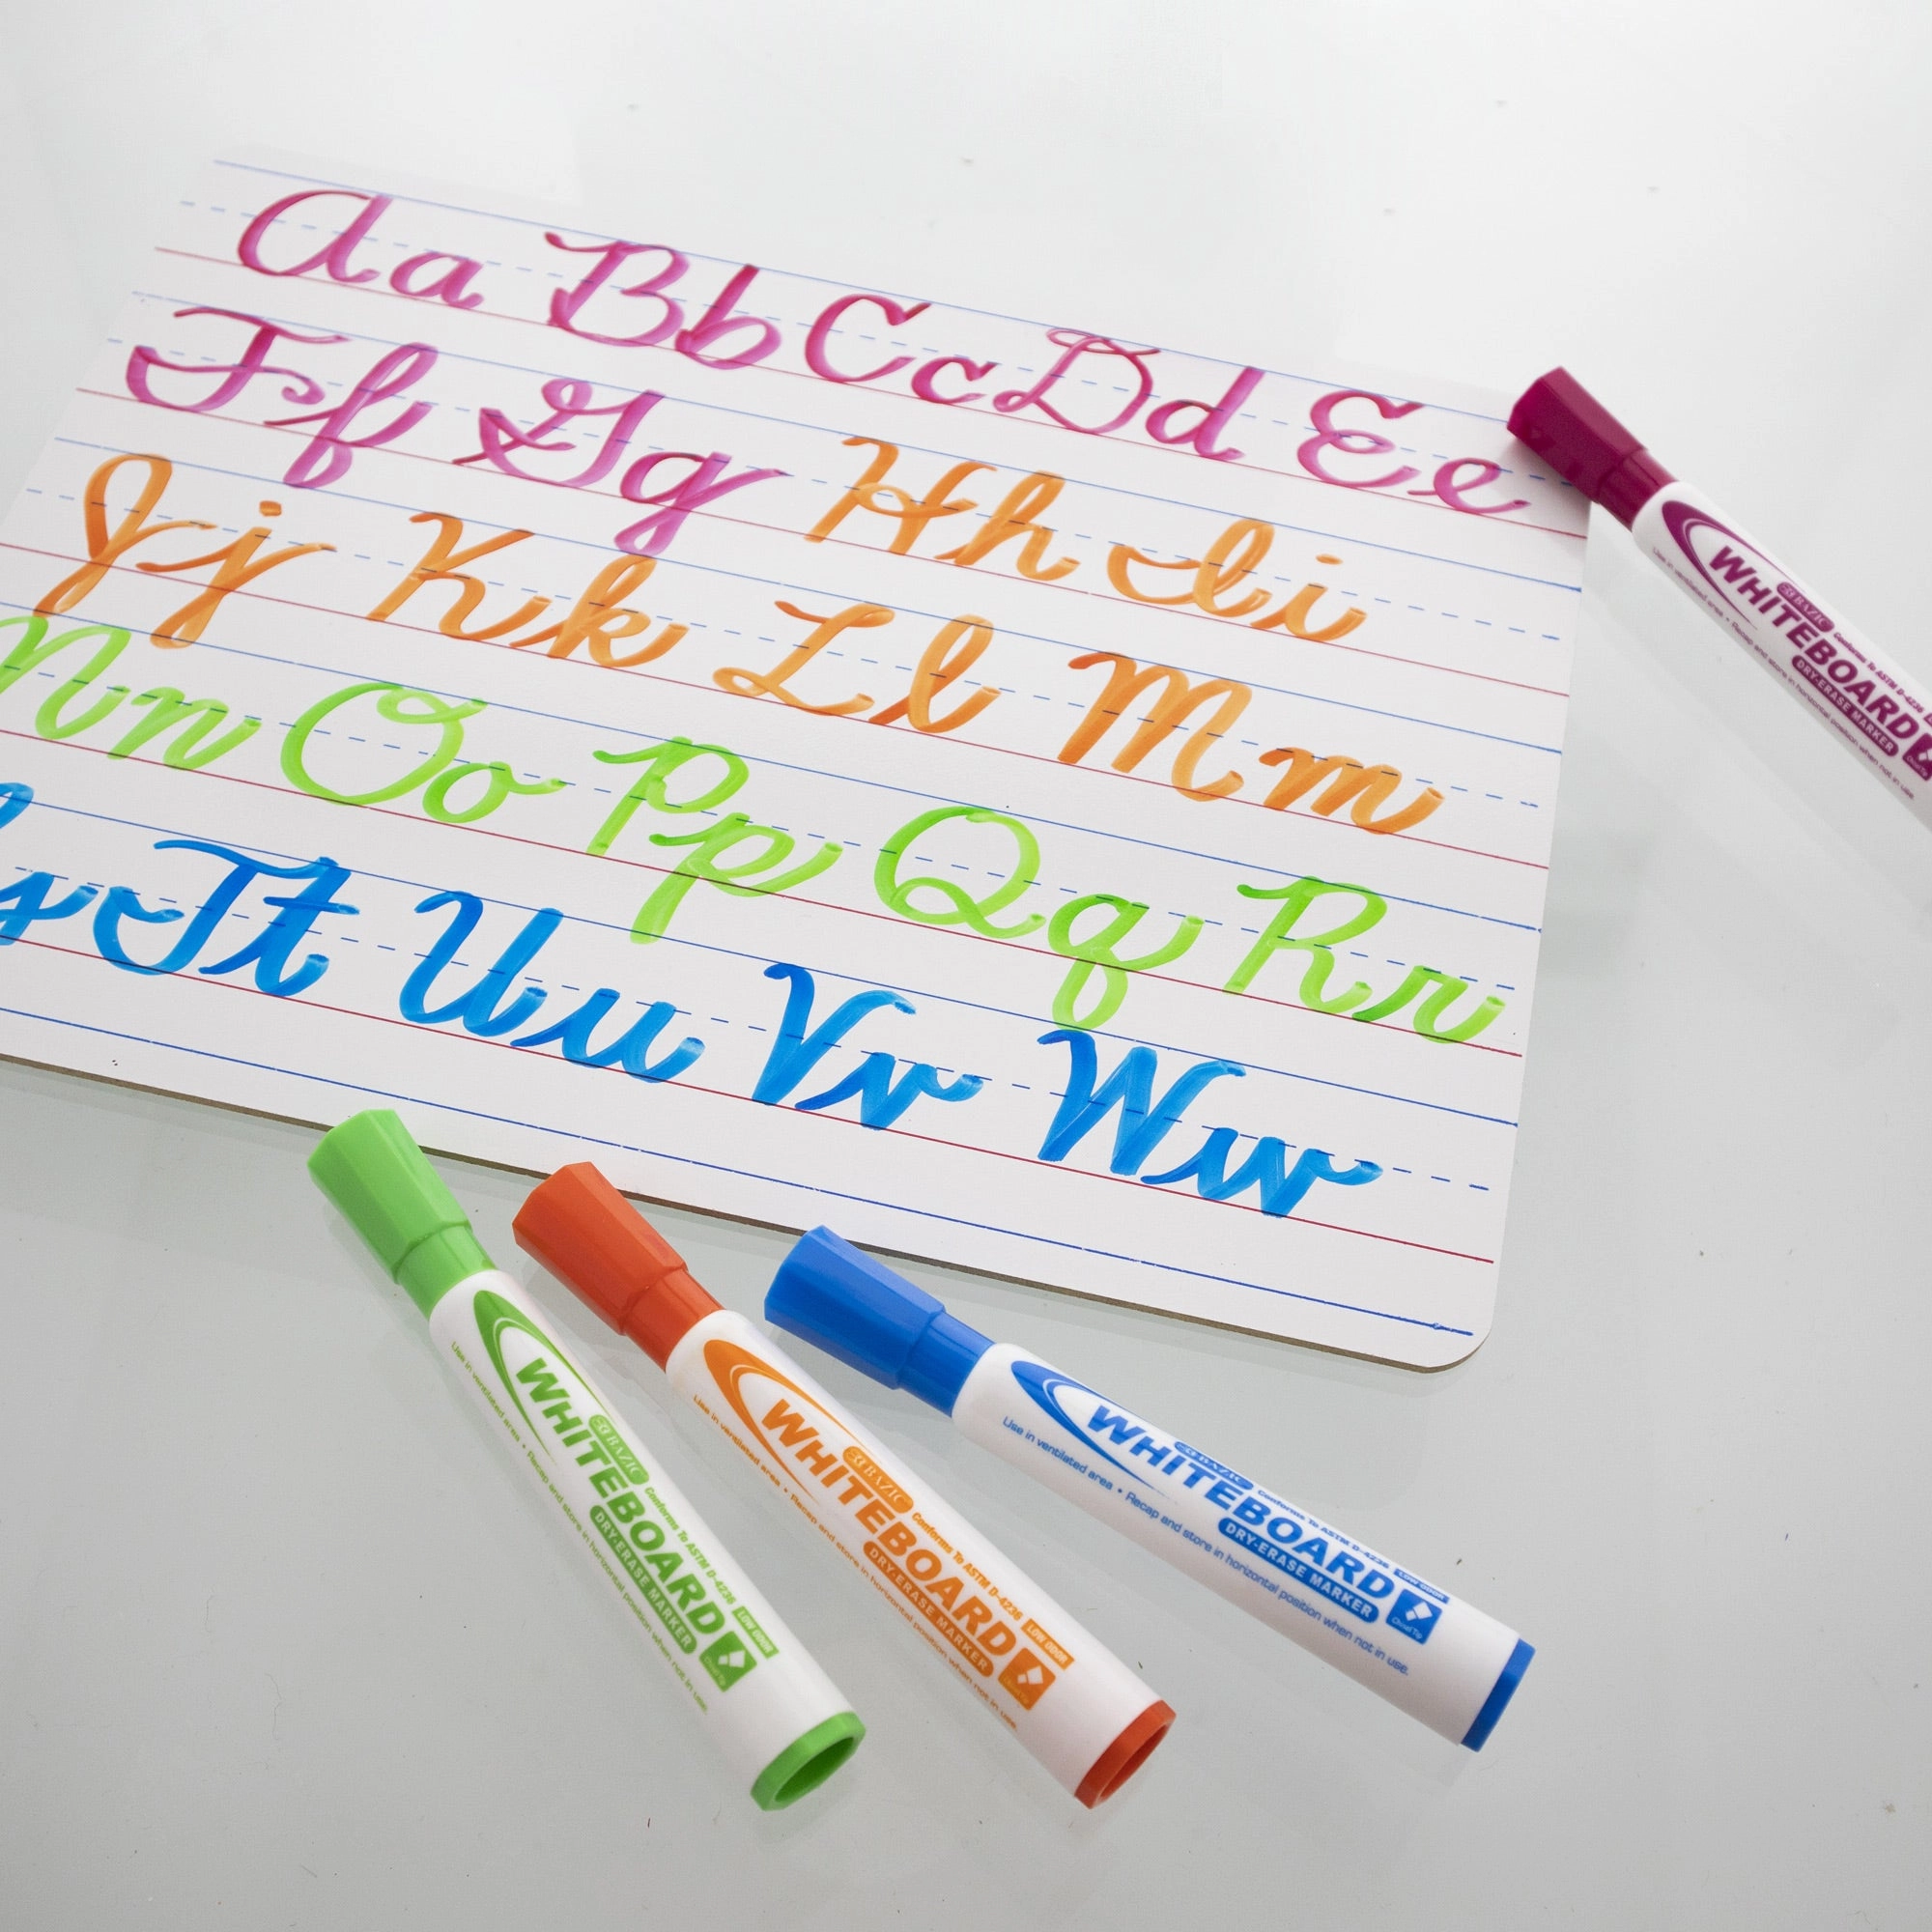 Aa Bb Cc Dd Ee
Ff Gg Hh Ii
Jj Kk Ll Mm
Nn Oo Pp Qq Rr
s Tt Uu Vv Ww
BAZIC
Conforms To ASTM D-4236
WHITEBOARD
DRY-ERASE MARKER
Chisel Tip
Use in ventilated area • Recap and store in horizontal position when not in use.
BAZIC
Conforms To ASTM D-4236
LOW ODOR
WHITEBOARD
DRY-ERASE MARKER
Chisel Tip
Use in ventilated area • Recap and store in horizontal position when not in use.
BAZIC
Conforms To ASTM D-4236
LOW ODOR
WHITEBOARD
DRY-ERASE MARKER
Chisel Tip
Use in ventilated area • Recap and store in horizontal position when not in use.
BAZIC
Conforms To ASTM D-4236
LOW ODOR
WHITEBOARD
DRY-ERASE MARKER
Chisel Tip
Use in ventilated area • Recap and store in horizontal position when not in use.